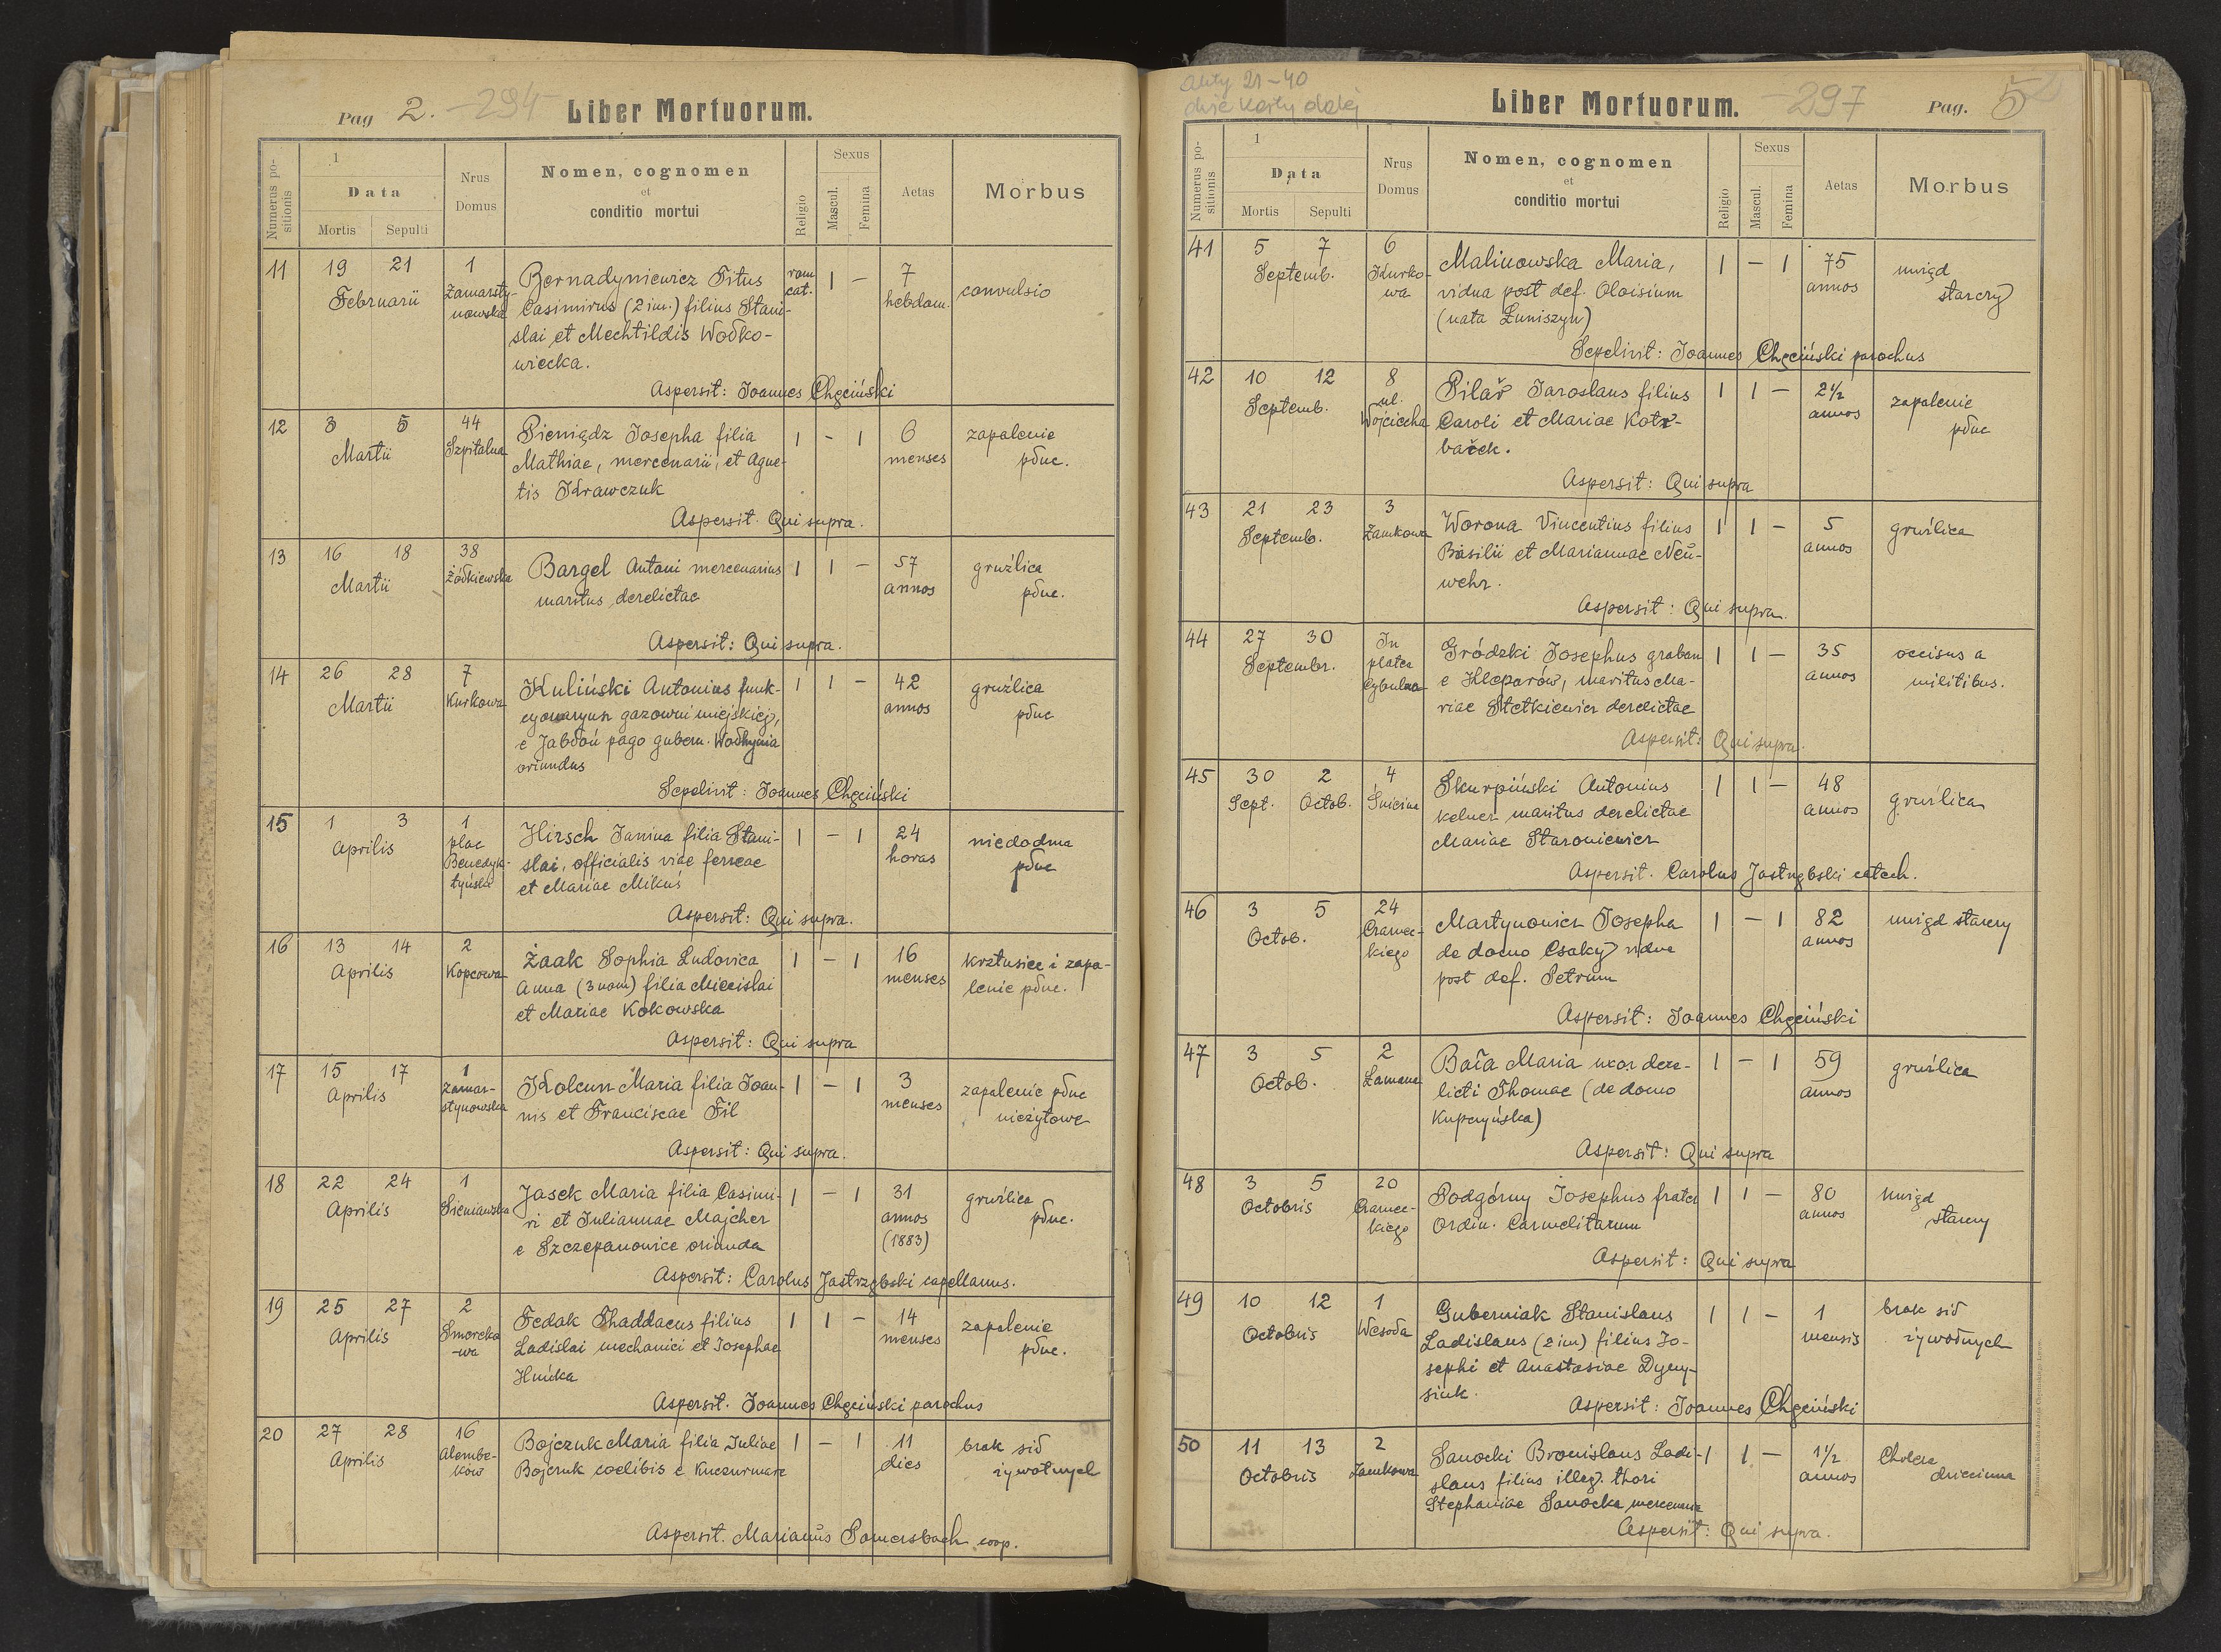 Pag 2. -294 Liber Mortuorum.
Numerus positionis
1
Data
Mortis Sepulti
Nrus Domus
Nomen, cognomen
et
conditio mortui
Religio
Sexus
Mascul. Femina
Aetas
Morbus
11 19 21 1 Bernadyniewicz Titus rom 1 - 7
Februarii Zamarsty- Casimirus (2 im.) filius Stani- cat. hebdom. convulsio
nowska slai et Mechtildis Wołko-
wiecka.
Aspersit: Joannes Chęciński
12 3 5 44 Pieniądz Josepha filia 1 - 1 6 zapalenie
Martii Szpitalna Mathiae, mercenarii, et Agne- menses płuc.
tis Krawczuk
Aspersit. Qui supra.
13 16 18 38 Bargel Antoni mercenarius 1 1 - 57 gruźlica
Martii Żółkiewska maritus derelictae annos płuc.
Aspersit: Qui supra.
14 26 28 7 Kuliński Antonius funk- 1 1 - 42 gruźlica
Martii Kurkowa cyonaryusz gazowni miejskiej, annos płuc
e Jabłoń pago gubern. Wołhynia
oriundus
Sepelivit: Joannes Chęciński
15 1 3 1 Hirsch Janina filia Stani- 1 - 1 24 niedodma
Aprilis plac slai, officialis viae ferreae horas płuc
Benedyk- et Mariae Mikuś
tyński
Aspersit: Qui supra.
16 13 14 2 Żaak Sophia Ludovica 1 - 1 16 krztusiec i zapa-
Aprilis Kopcowa Anna (3 nom) filia Miecislai menses lenie płuc.
et Mariae Kokowska
Aspersit: Qui supra
17 15 17 1 Kolcun Maria filia Joan- 1 - 1 3 zapalenie płuc
Aprilis Zamar- nis et Franciscae Fil menses nieżytowe
stynowska
Aspersit: Qui supra.
18 22 24 1 Jasek Maria filia Casimi- 1 - 1 31 gruźlica
Aprilis Sieniawska ri et Juliannae Majcher annos płuc.
e Szczepanowice oriunda (1883)
Aspersit: Carolus Jastrzębski capellanus.
19 25 27 2 Fedak Thaddaeus filius 1 1 - 14 zapalenie
Aprilis Smereko Ladislai mechanici et Josephae menses płuc.
-wa Hnićka
Aspersit. Joannes Chęciński parochus
20 27 28 16 Bojczuk Maria filia Juliae 1 - 1 11 brak sił
Aprilis Alembe- Bojczuk coelibis e Kuczurmare dies żywotnych
ków
Aspersit. Marianus Somersbach coop.
Akty 21-40
dwie karty dalej
Liber Mortuorum. -297 Pag. 5
Numerus positionis
1
Data
Mortis Sepulti
Nrus
Domus
Nomen, cognomen
et
conditio mortui
Religio
Sexus
Mascul. Femina
Aetas
Morbus
41 5 7 6 Malinowska Maria, 1 - 1 75 uwiąd
Septemb. Kurko- vidua post def. Aloisium annos starczy
wa (nata Łuniszyn)
Sepelivit: Joannes Chęciński parochus
42 10 12 8 Pilař Jaroslaus filius 1 1 - 2½ zapalenie
Septemb. ul. Caroli et Mariae Kotr- annos płuc
Wojciecha baček.
Aspersit: Qui supra
43 21 23 3 Worona Vincentius filius 1 1 - 5 gruźlica
Septemb. Zamkowa Basilii et Mariannae Neu- annos
wehr.
Aspersit: Qui supra.
44 27 30 In Gródzki Josephus graban 1 1 - 35 occisus a
Septembr. platea e Kleparów, maritus Ma- annos militibus.
Cybulna riae Stetkiewicz derelictae
Aspersit: Qui supra.
45 30 2 4 Skurpiński Antonius 1 1 - 48 gruźlica
Sept. Octob. Śnieżna kelner maritus derelictae annos
Mariae Staroniewicz
Aspersit. Carolus Jastrzębski catech.
46 3 5 24 Martynowicz Josepha 1 - 1 82 uwiąd starczy
Octob. Czarnec- de domo Csaky vidua annos
kiego post def. Petrum
Aspersit: Joannes Chęciński
47 3 5 2 Bała Maria uxor dere- 1 - 1 59 gruźlica
Octob. Łamana licti Thomae (de domo annos
Kupczyńska)
Aspersit: Qui supra
48 3 5 20 Podgórny Josephus frater 1 1 - 80 uwiąd
Octobris Czarnec- Ordin. Carmelitarum annos starczy
kiego
Aspersit: Qui supra
49 10 12 1 Guberniak Stanislaus 1 1 - 1 brak sił
Octobris Wesoła Ladislaus (2 im) filius Jo- mensis żywotnych
sephi et Anastasiae Dymy-
siuk.
Aspersit: Joannes Chęciński
50 11 13 2 Sanocki Bronislaus Ladi- 1 1 - 1½ Cholera
Octobris Zamkowa slaus filius illeg. thori annos dziecinna
Stephaniae Sanocka mercenaria
Aspersit: Qui supra.